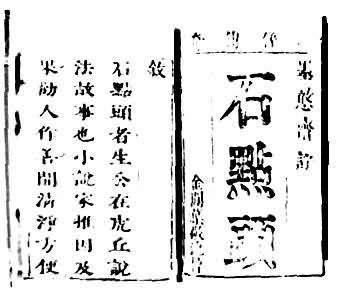 墨憨齋評
石點頭
金閶葉敬池梓
敘
石點頭者生公在虎丘說
法故事也小說家推因及
果勸人作善開清淨方便